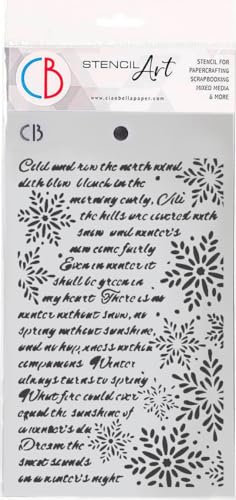 CB
STENCIL Art
www.ciaobellapaper.com
STENCIL FOR
PAPERCRAFTING
SCRAPBOOKING
MIXED MEDIA
& MORE
CB
Cold and raw the north wind
doth blow bleack in the
morning early, All
the hills are covered with
snow and winter's
now come fairly
Even in winter it
shall be green in
my heart There is no
winter without snow, no
spring without sunshine,
and no happiness without
companions Winter
always turns to spring
What fire could ever
equal the sunshine of
a winter's day
Dream the
sweet sounds
on a winter's night